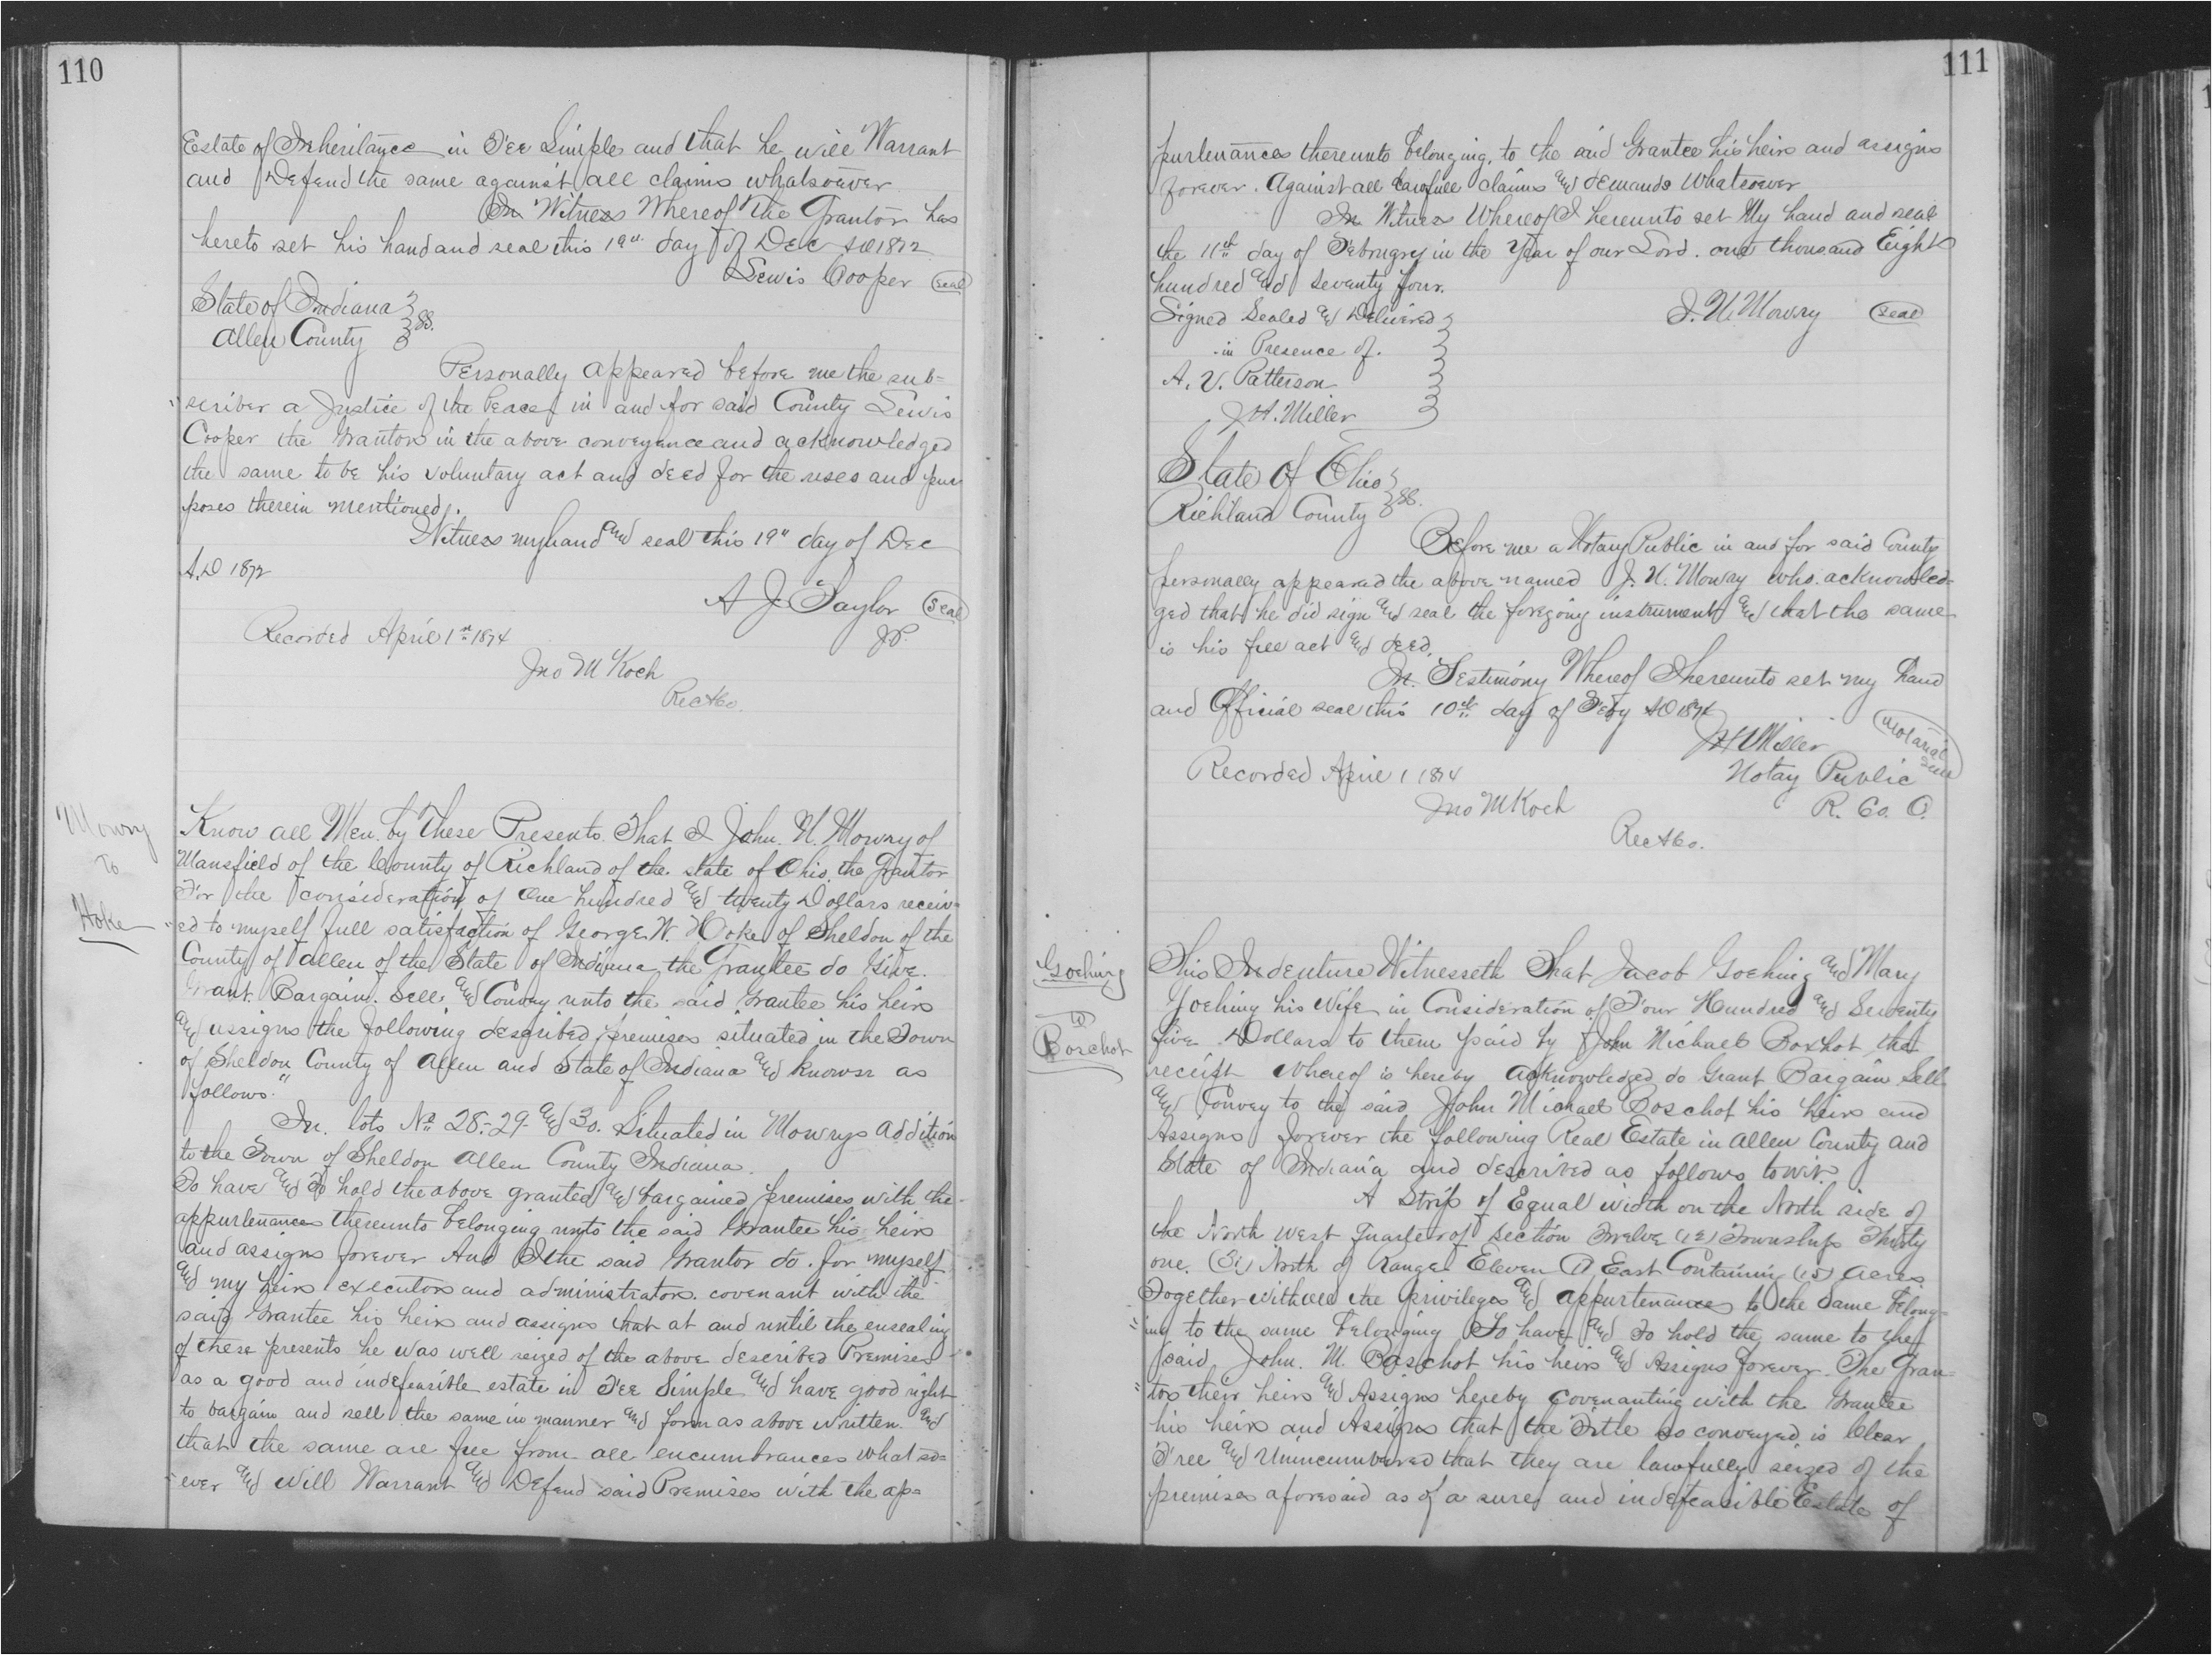 110
Estate of Inheritance in Fee Simple and that he will Warrant
and Defend the same against all claims whatsoever
In Witness Whereof the Grantor has
hereto set his hand and seal this 19" day of Dec AD 1872
Lewis Cooper (seal)
State of Indiana } ss.
Allen County }
Personally appeared before me the sub=
scriber a Justice of the Peace in and for said County Lewis
Cooper the Grantor in the above conveyance and acknowledged
the same to be his voluntary act and deed for the uses and pur
poses therein mentioned.
Witness my hand and seal this 19" day of Dec
A.D 1872
A J Taylor (Seal)
J.P.
Recorded April 1st 1874
Jno M Koch
Rec A Co.
Mowry
To
Hoke
Know all Men by These Presents That I John. N. Mowry of
Mansfield of the County of Richland of the State of Ohio the Grantor
For the consideration of One hundred and twenty Dollars receiv=
ed to myself full satisfaction of George W. Hoke of Sheldon of the
County of Allen of the State of Indiana the Grantee do Give.
Grant. Bargain. Sell and Convey unto the said Grantee his heirs
and assigns the following described premises situated in the Town
of Sheldon County of Allen and State of Indiana and known as
follows"
In. lots No 28.-29- and 30. Situated in Mowrys addition
to the Town of Sheldon Allen County Indiana.
To have and To hold the above granted and bargained premises with the
appurtenances thereunto belonging unto the said Grantee his heirs
and assigns forever And I the said Grantor do. for myself
and my heirs executors and administrators. covenant with the
said Grantee his heirs and assigns that at and until the ensealing
of these presents he was well seized of the above described Premises
as a good and indefeasible estate in Fee Simple and have good right
to bargain and sell the same in manner and form as above written. and
that the same are free from all encumbrances what so=
ever and will Warrant and Defend said Premises with the ap=
111
purtenances thereunto belonging, to the said Grantee his heirs and assigns
forever. Against all lawfull claims and demands Whatsoever
In Witness Whereof I hereunto set My hand and seal
the 11th day of February in the Year of our Lord. one thousand Eight
hundred and seventy four.
Signed Sealed and Delivered }
in Presence of. }
J. N. Mowry (seal)
A. V. Patterson
J H. Miller
State of Ohio } ss.
Richland County }
Before me a Notary Public in and for said County
personally appeared the above named J. N. Mowry who acknowled=
ged that he did sign and seal the foregoing instrument and that the same
is his free act and deed.
In. Testimony Whereof I hereunto set my hand
and Official seal this 10th day of Feby AD 1874
J H Miller (Notarial Seal)
Notay Public
R. Co. O.
Recorded April 1 1874
Jno M Koch
Rec A Co.
Goehing
To
Borchot
This Indenture Witnesseth That Jacob Goehing and Mary
Goehing his Wife in Consideration of Four Hundred and Seventy
five Dollars to them paid by John Michael Boschot the
receipt whereof is hereby acknowledged do Grant Bargain Sell
and Convey to the said John Michael Boschot his heirs and
Assigns forever the following Real Estate in Allen County and
State of Indiana and described as follows towit.
A Strip of Equal width on the North side of
the North West Quarter of Section Twelve (12) Township Thirty
one. (31) North of Range Eleven 11 East Containing (15) Acres.
Together with all the Privileges and appurtenances to the same belong=
ing to the same belonging To have and To hold the same to the
said John. M. Boschot his heirs and Assigns forever. The Gran=
tors their heirs and Assigns hereby covenanting with the Grantee
his heirs and Assigns that the Title so conveyed is Clear
Free and Unincumbered that they are lawfully seized of the
premises aforesaid as of a sure and indefeasible Estate of